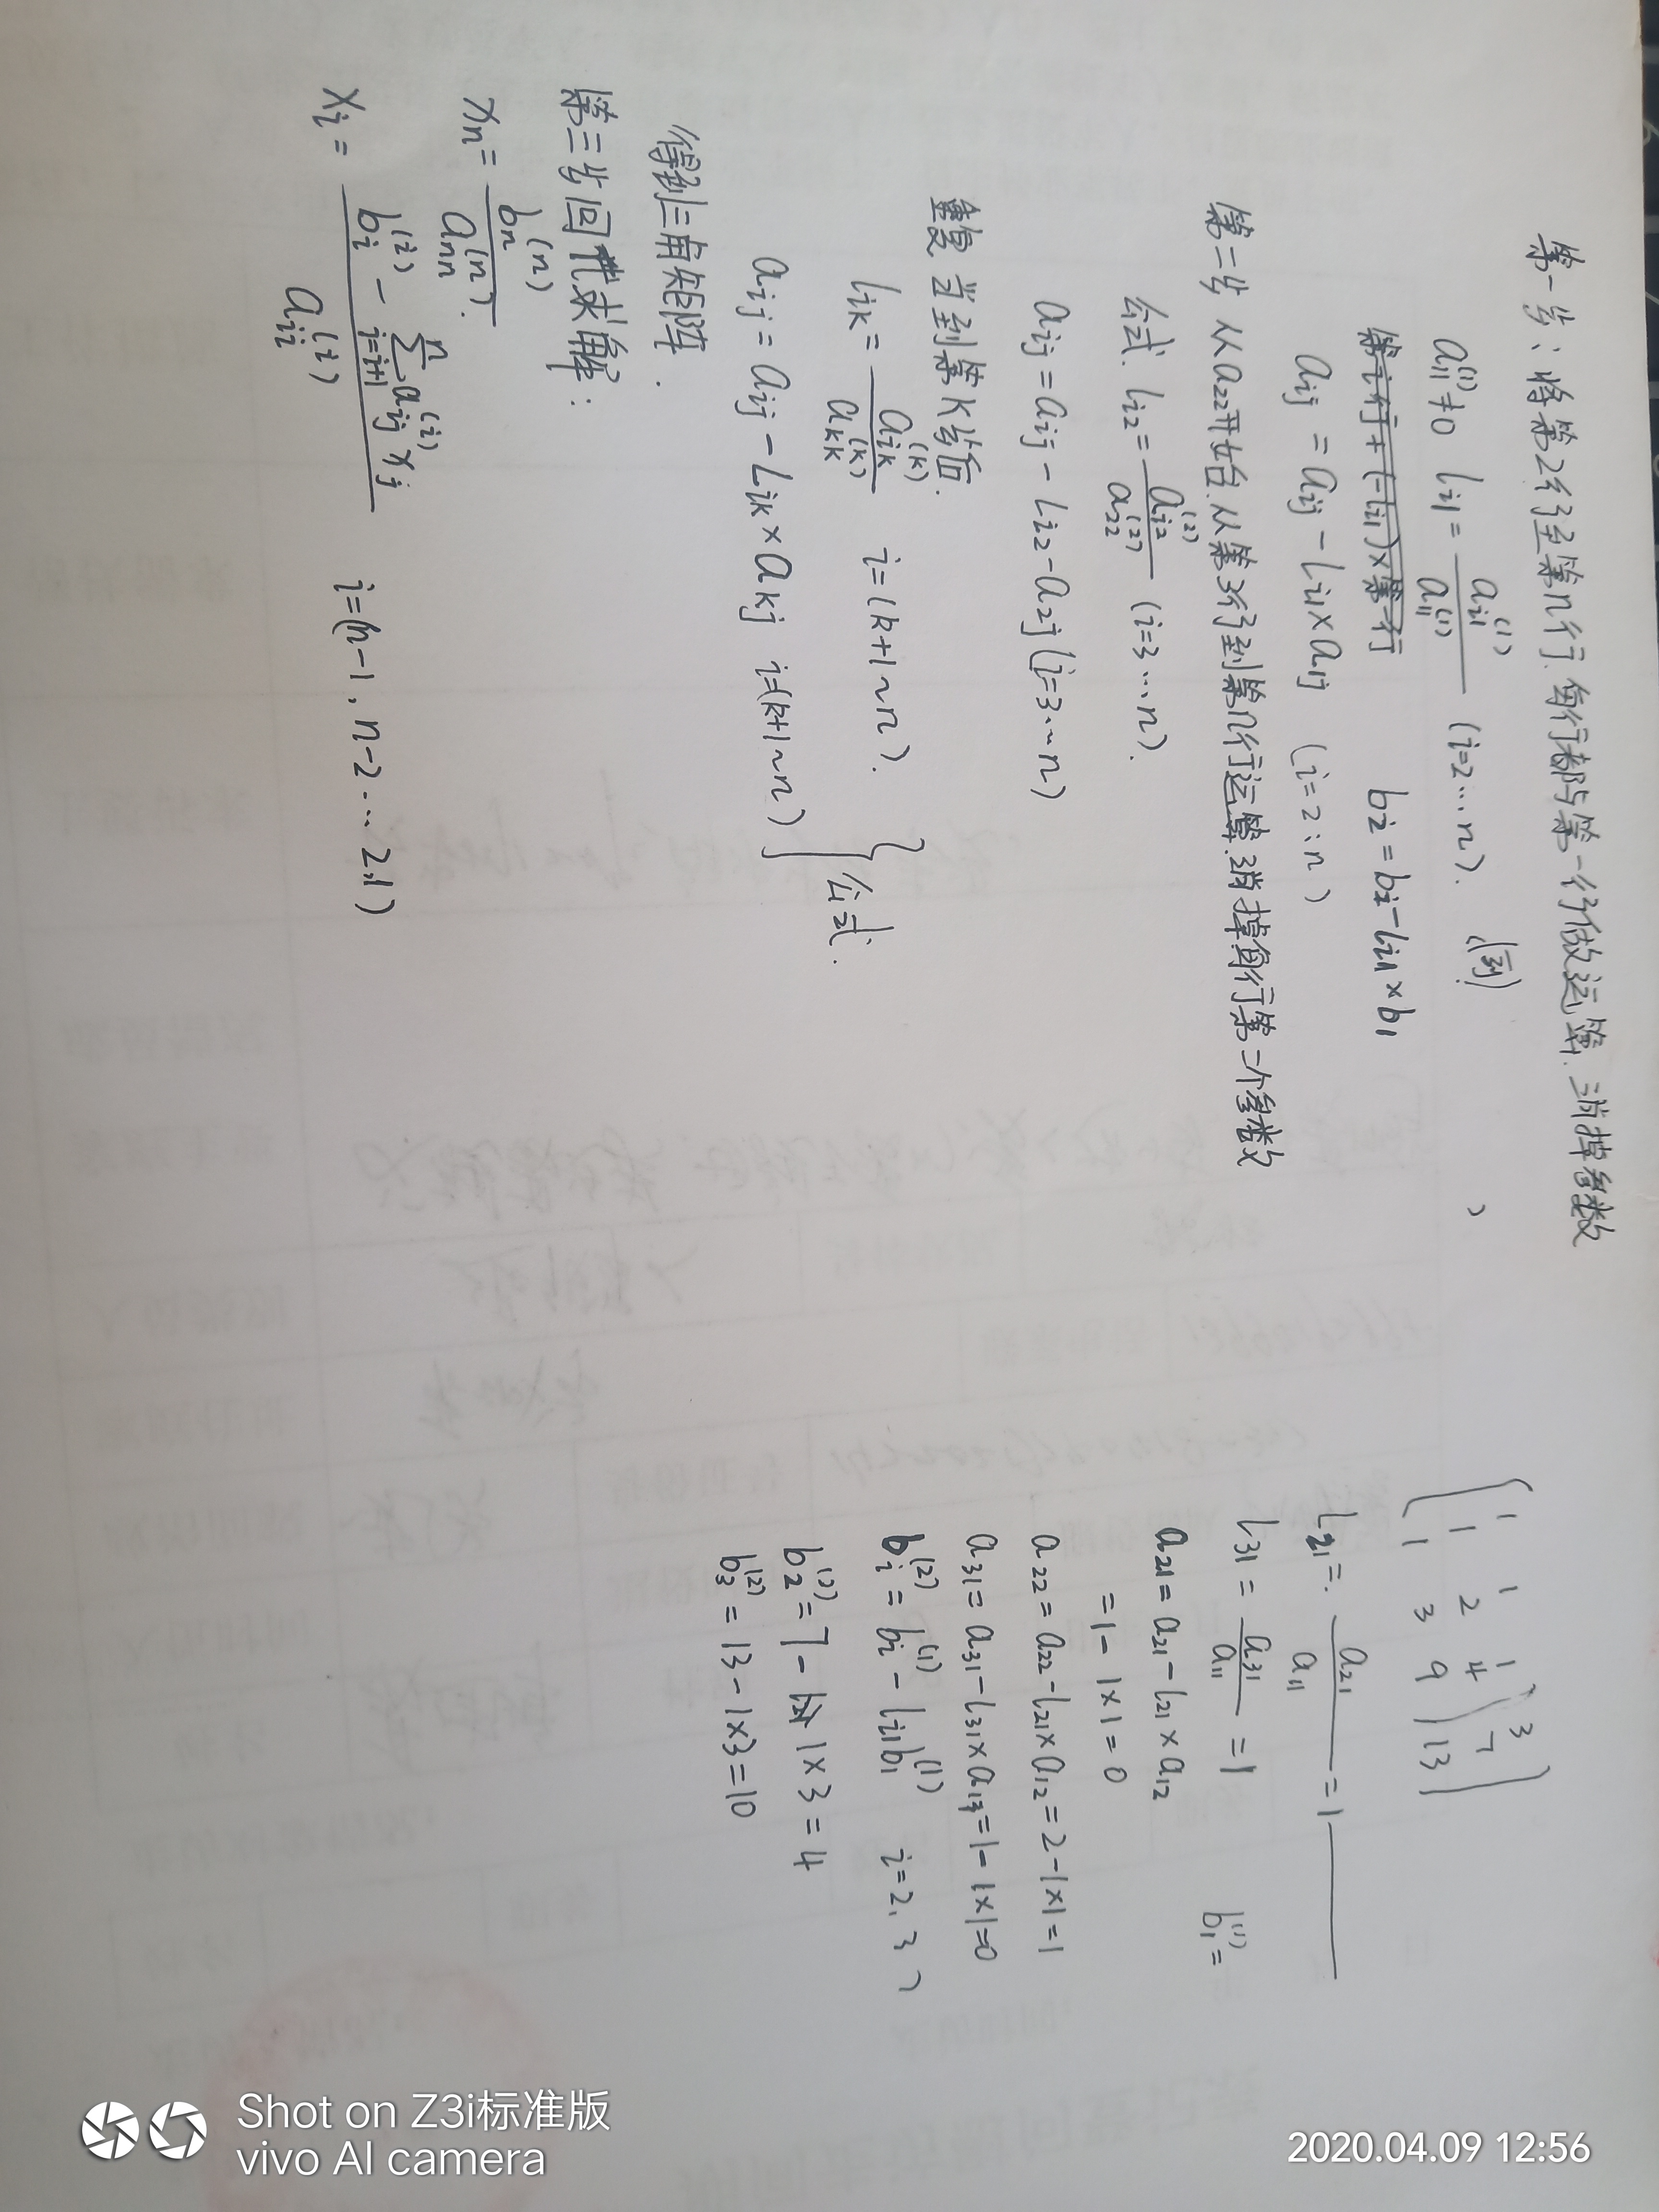 第一步：将第2行至第n行，每行都与第一行做运算，消掉参数
a₁₁⁽¹⁾≠0 lᵢ₁= aᵢ₁⁽¹⁾/a₁₁⁽¹⁾ (i=2…n).
第i行+(-lᵢ₁)×第一行 bᵢ=bᵢ-lᵢ₁×b₁
aᵢⱼ=aᵢⱼ-lᵢ₁×a₁ⱼ (i=2:n)
第二步 从a₂₂开始.从第3行到第n行运算.消掉每行第二个参数
公式. lᵢ₂= aᵢ₂⁽²⁾/a₂₂⁽²⁾ (i=3…n).
aᵢⱼ=aᵢⱼ-lᵢ₂-a₂ⱼ(i=3…n)
重复 当到第K步后.
lᵢₖ= aᵢₖ⁽ᵏ⁾/aₖₖ⁽ᵏ⁾ i=(k+1~n).
aᵢⱼ=aᵢⱼ-Lᵢₖ×aₖⱼ i=(k+1~n)
公式.
得到三角矩阵.
第三步 回代求解：
xₙ= bₙ⁽ⁿ⁾/aₙₙ⁽ⁿ⁾.
xᵢ= (bᵢ⁽ⁱ⁾-∑ⱼ₌ᵢ₊₁ⁿ aᵢⱼ⁽ⁱ⁾xⱼ)/aᵢᵢ⁽ⁱ⁾ i=(n-1,n-2…2,1)
1 1 1 3
1 2 4 7
1 3 9 13
l₂₁= a₂₁/a₁₁ =1
l₃₁= a₃₁/a₁₁ =1 b₁⁽¹⁾=
a₂₁=a₂₁-l₂₁×a₁₂
=1-1×1=0
a₂₂=a₂₂-l₂₁×a₁₂=2-1×1=1
a₃₁=a₃₁-l₃₁×a₁₃=1-1×1=0
bᵢ⁽²⁾=bᵢ⁽¹⁾-lᵢ₁b₁⁽¹⁾ i=2,3
b₂⁽²⁾=7-1×3=4
b₃⁽²⁾=13-1×3=10
Shot on Z3i标准版
vivo AI camera
2020.04.09 12:56